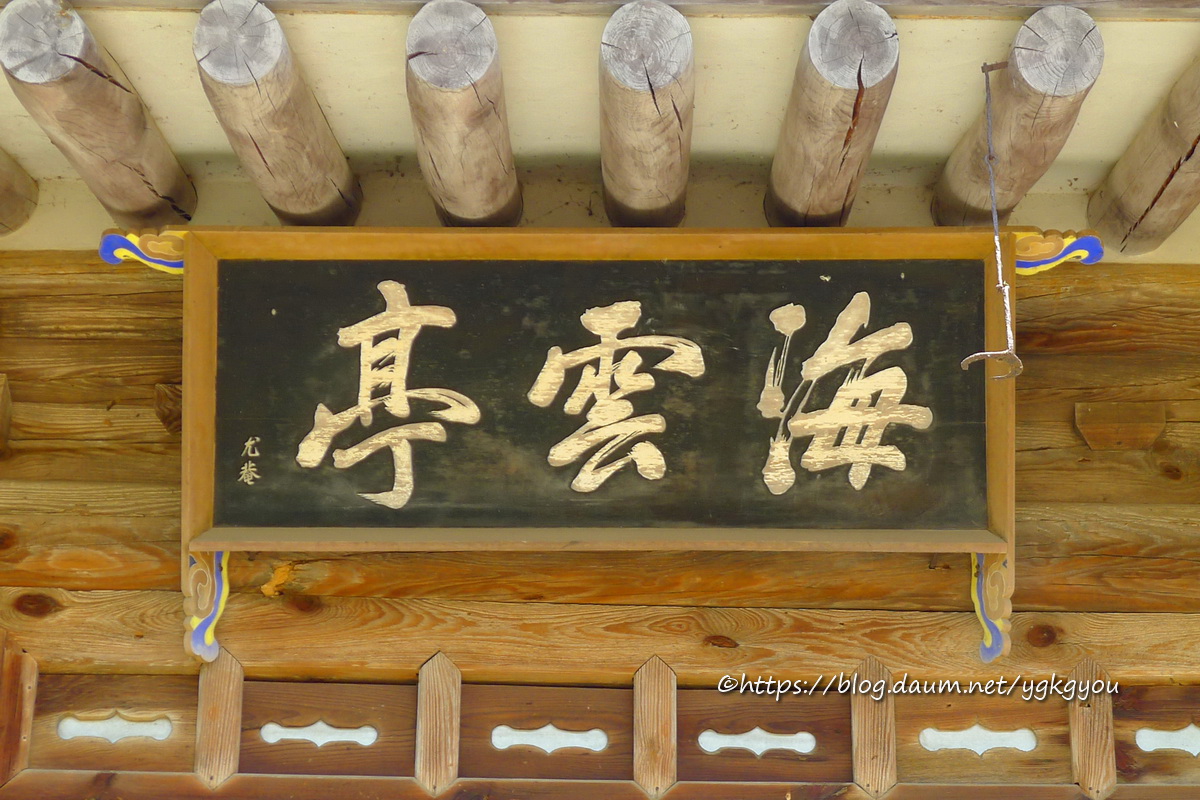 海雲亭
尤菴
©https://blog.daum.net/ygkgyou